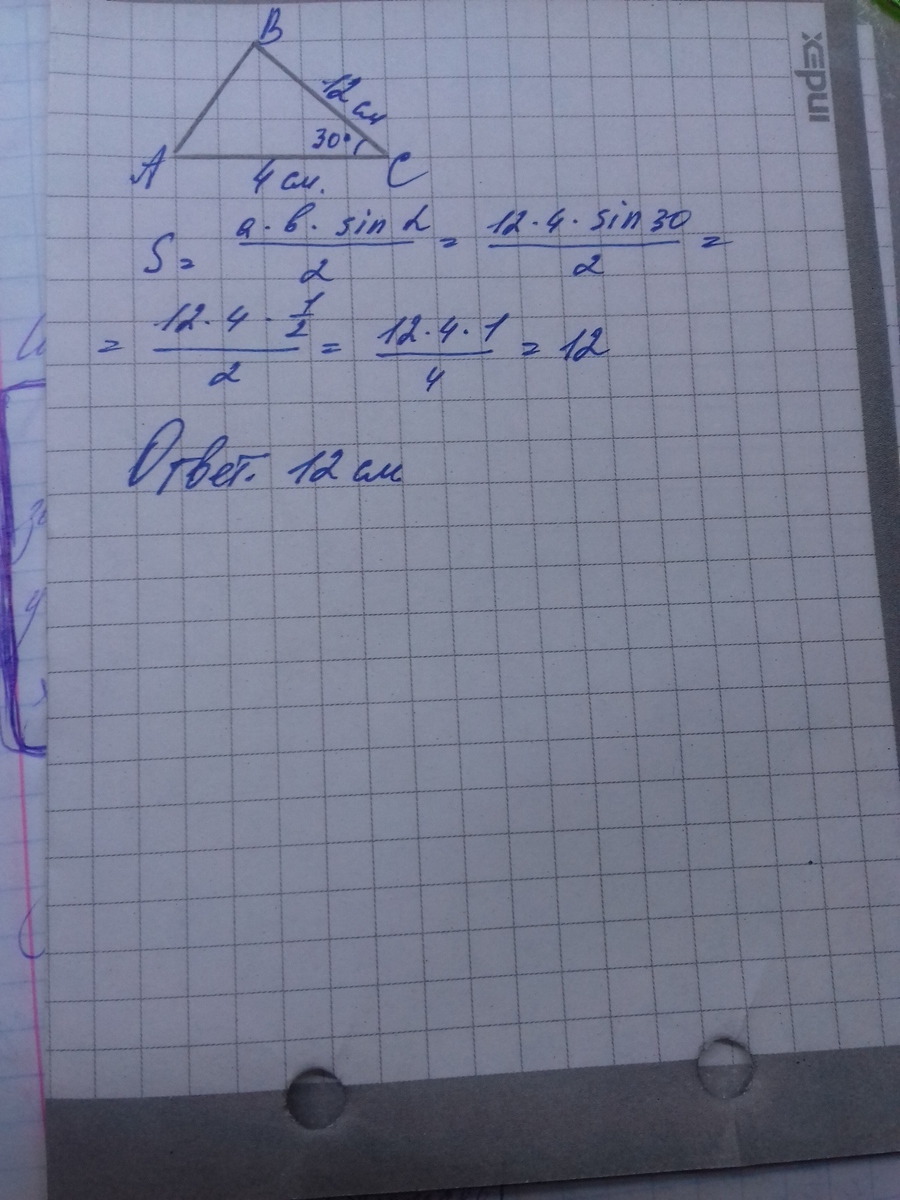 B
12 см
30°
A
C
4 см.
S = a·b·sin α / 2 = 12·4·sin 30 / 2 =
= 12·4·1/2 / 2 = 12·4·1 / 4 = 12
Ответ. 12 см
INDEX